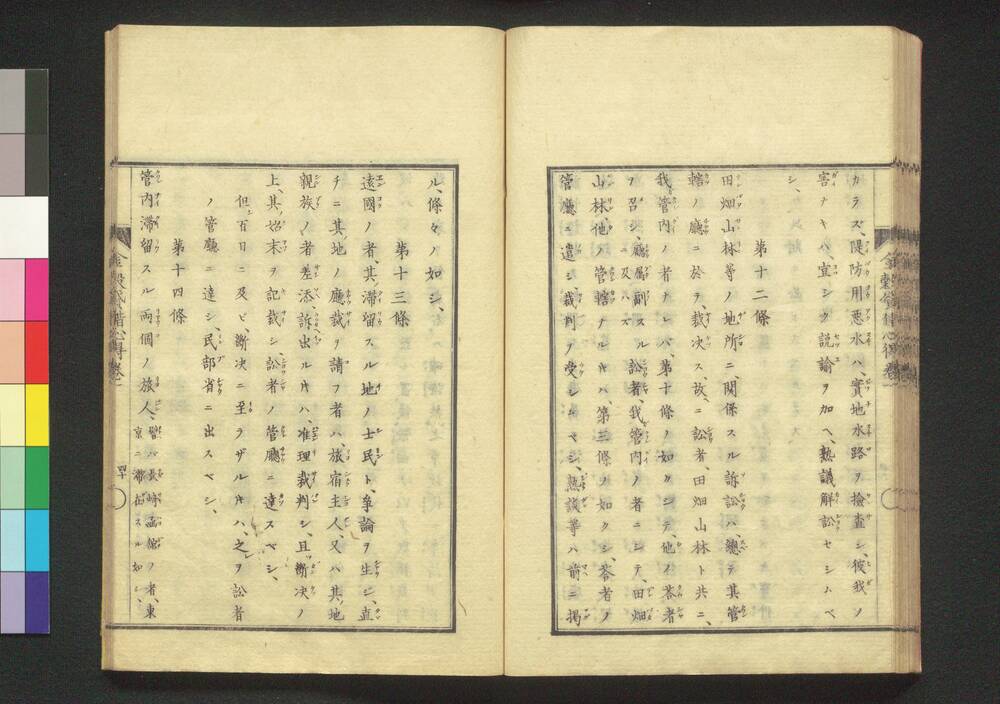 カラス、隄防用悪水ハ、實地水路ヲ檢査シ、彼我ノ
害ナキハ、宜シク説諭ヲ加ヘ、熟議解訟セシムベ
シ、
第十二條
田畑山林等ノ地所ニ關係スル訴訟ハ、總テ其管
轄ノ廳ニ於テ、裁决ス、故ニ訟者、田畑山林ト共ニ、
我管内ノ者ナレバ、第十條ノ如クシテ、他ノ答者
ヲ召シ、廳屬鄙スルニ及ハズ、訟者、我管内ノ者ニシテ、田畑
山林他ノ管轄ナル片ハ、第三條ノ如クシ、答者ノ
管廳ニ遣シ、裁判ヲ受シムベシ、熟談等ハ前ニ掲
ル、條々ノ如シ、
第十三條
遠國ノ者、其滯留スル地ノ士民ト、爭論ヲ生シ、直
チニ其地ノ廳裁ヲ請フ者ハ、旅宿主人、又ハ其地
親族ノ者差添訴出ル片ハ、准理裁判シ、且斷决ノ
上、其始末ヲ記裁シ、訟者ノ管廳ニ達スベシ、
但百日ニ及ヒ、斷决ニ至ラザル片ハ、之ヲ訟者
ノ管廳ニ達シ、民部省ニ出スベシ、
第十四條
管内滯留スル兩個ノ旅人、譬ハ長崎函館ノ者、東京ニ滯在スル如シ、
金穀貸借心得 卷一